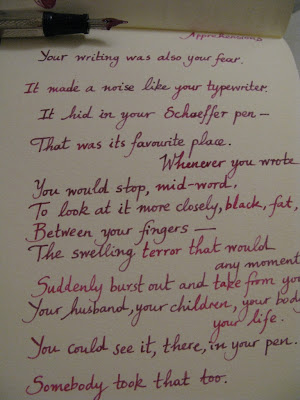 Apprehensions
Your writing was also your fear.
It made a noise like your typewriter.
It hid in your Schaeffer pen —
That was its favourite place.
Whenever you wrote
You would stop, mid-word,
To look at it more closely, black, fat,
Between your fingers —
The swelling terror that would
any moment
Suddenly burst out and take from you
Your husband, your children, your body
your life.
You could see it, there, in your pen.
Somebody took that too.